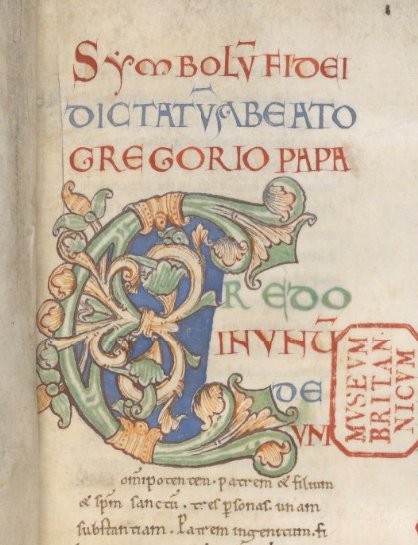 SYMBOLŪ FIDEI
DICTATŪ A BEATO
GREGORIO PAPA
CREDO
IN VNŪ
DE
VM
omnipotentem · patrem & filium
& spm̄ sanctū · tres psonas · unam
substantiam · Patrem ingenitum · fi
MVSEVM
BRITAN
NICVM